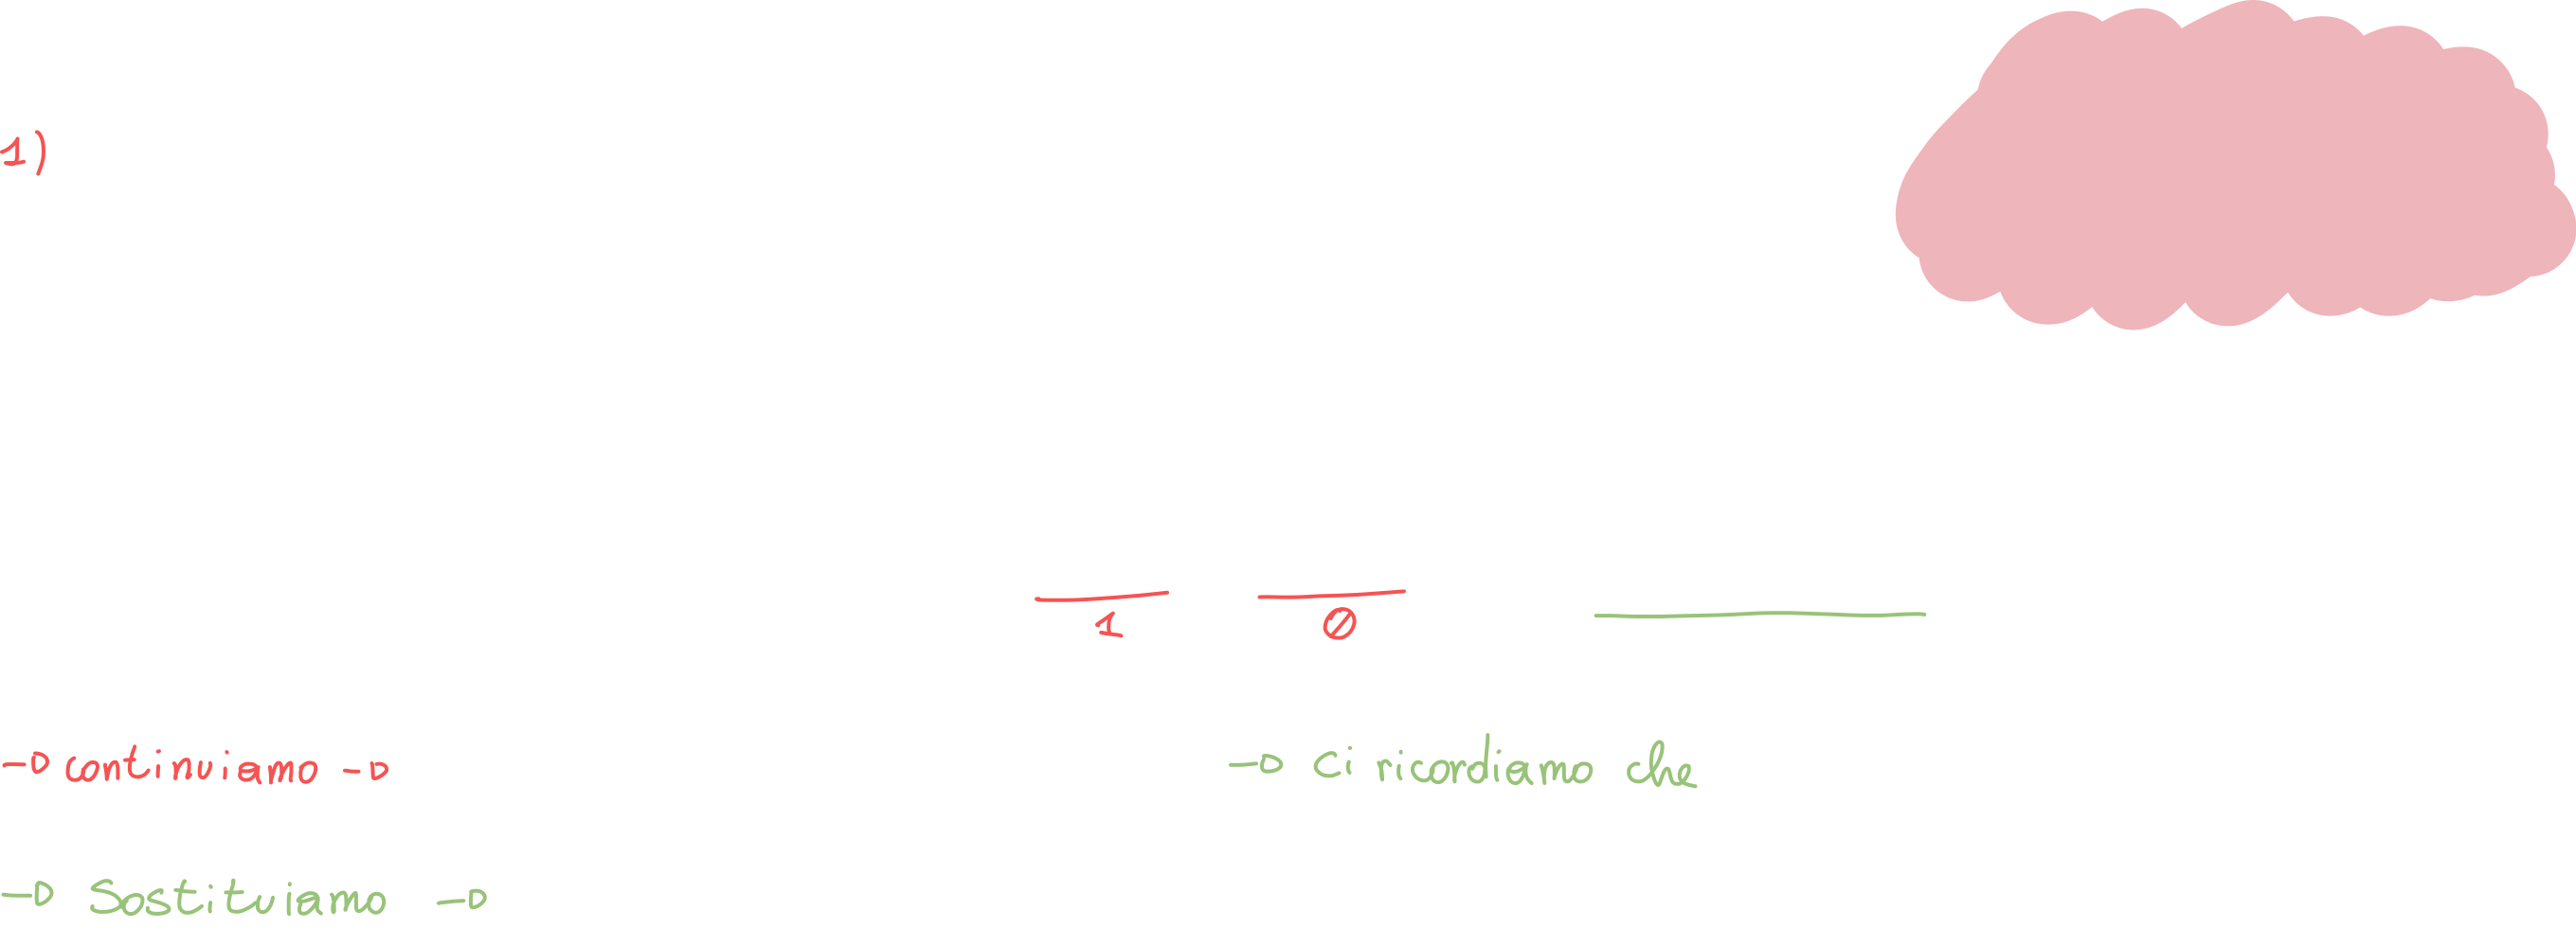 1)
1 0
→ continuiamo → → Ci ricordiamo che
→ Sostituiamo →